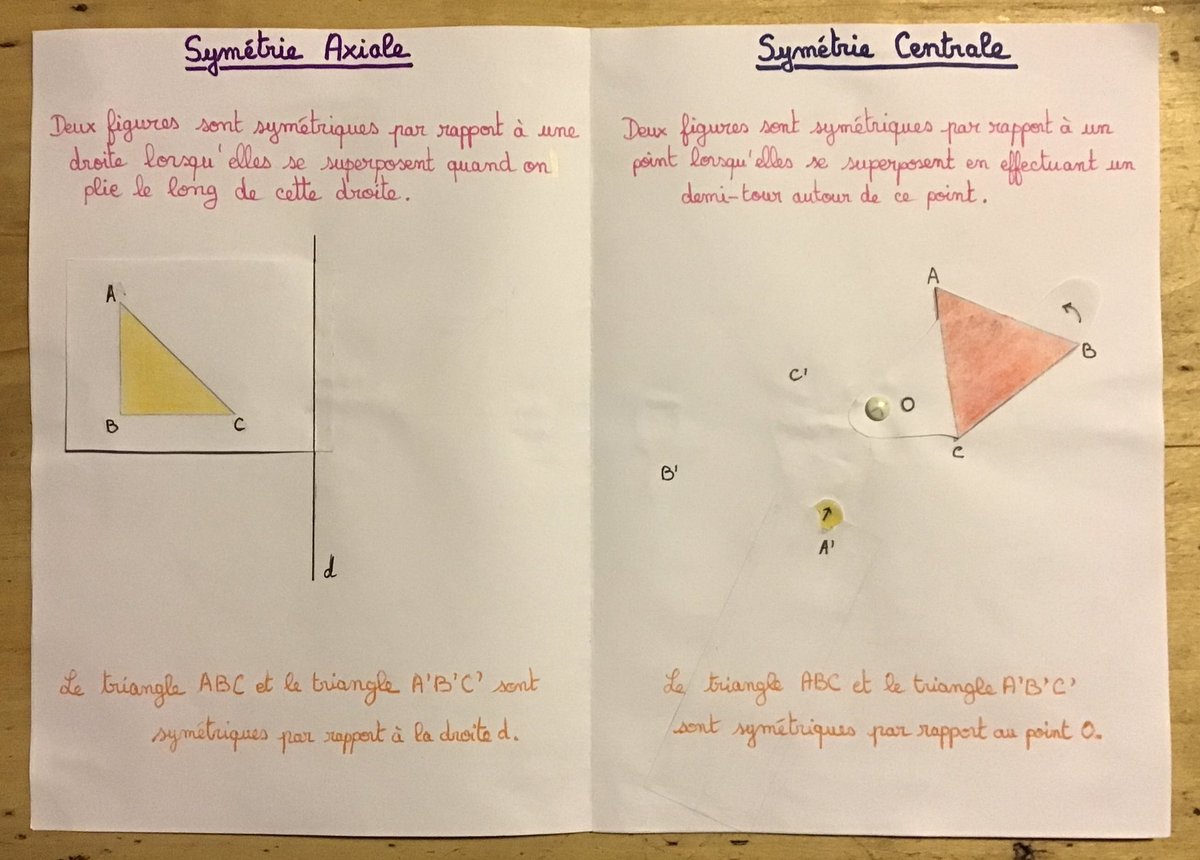 Symétrie Axiale
Deux figures sont symétriques par rapport à une
droite lorsqu'elles se superposent quand on
plie le long de cette droite.
A
B
C
d
Le triangle ABC et le triangle A'B'C' sont
symétriques par rapport à la droite d.
Symétrie Centrale
Deux figures sont symétriques par rapport à un
point lorsqu'elles se superposent en effectuant un
demi-tour autour de ce point.
A
B
C'
O
C
B'
A'
Le triangle ABC et le triangle A'B'C'
sont symétriques par rapport au point O.